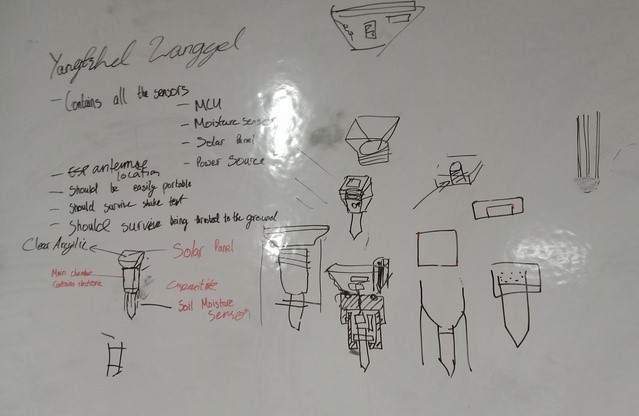 - Contains all the sensors
- MCU
- Moisture sensor
- Solar Panel
- Power Source
- ESP antennae location
- Should be easily portable
- Should survive shake test
- Should survive being thrusted to the ground
Clear Acryllic
Solar Panel
Main chamber
Contains electronic
Capacitive
Soil Moisture
Sensor